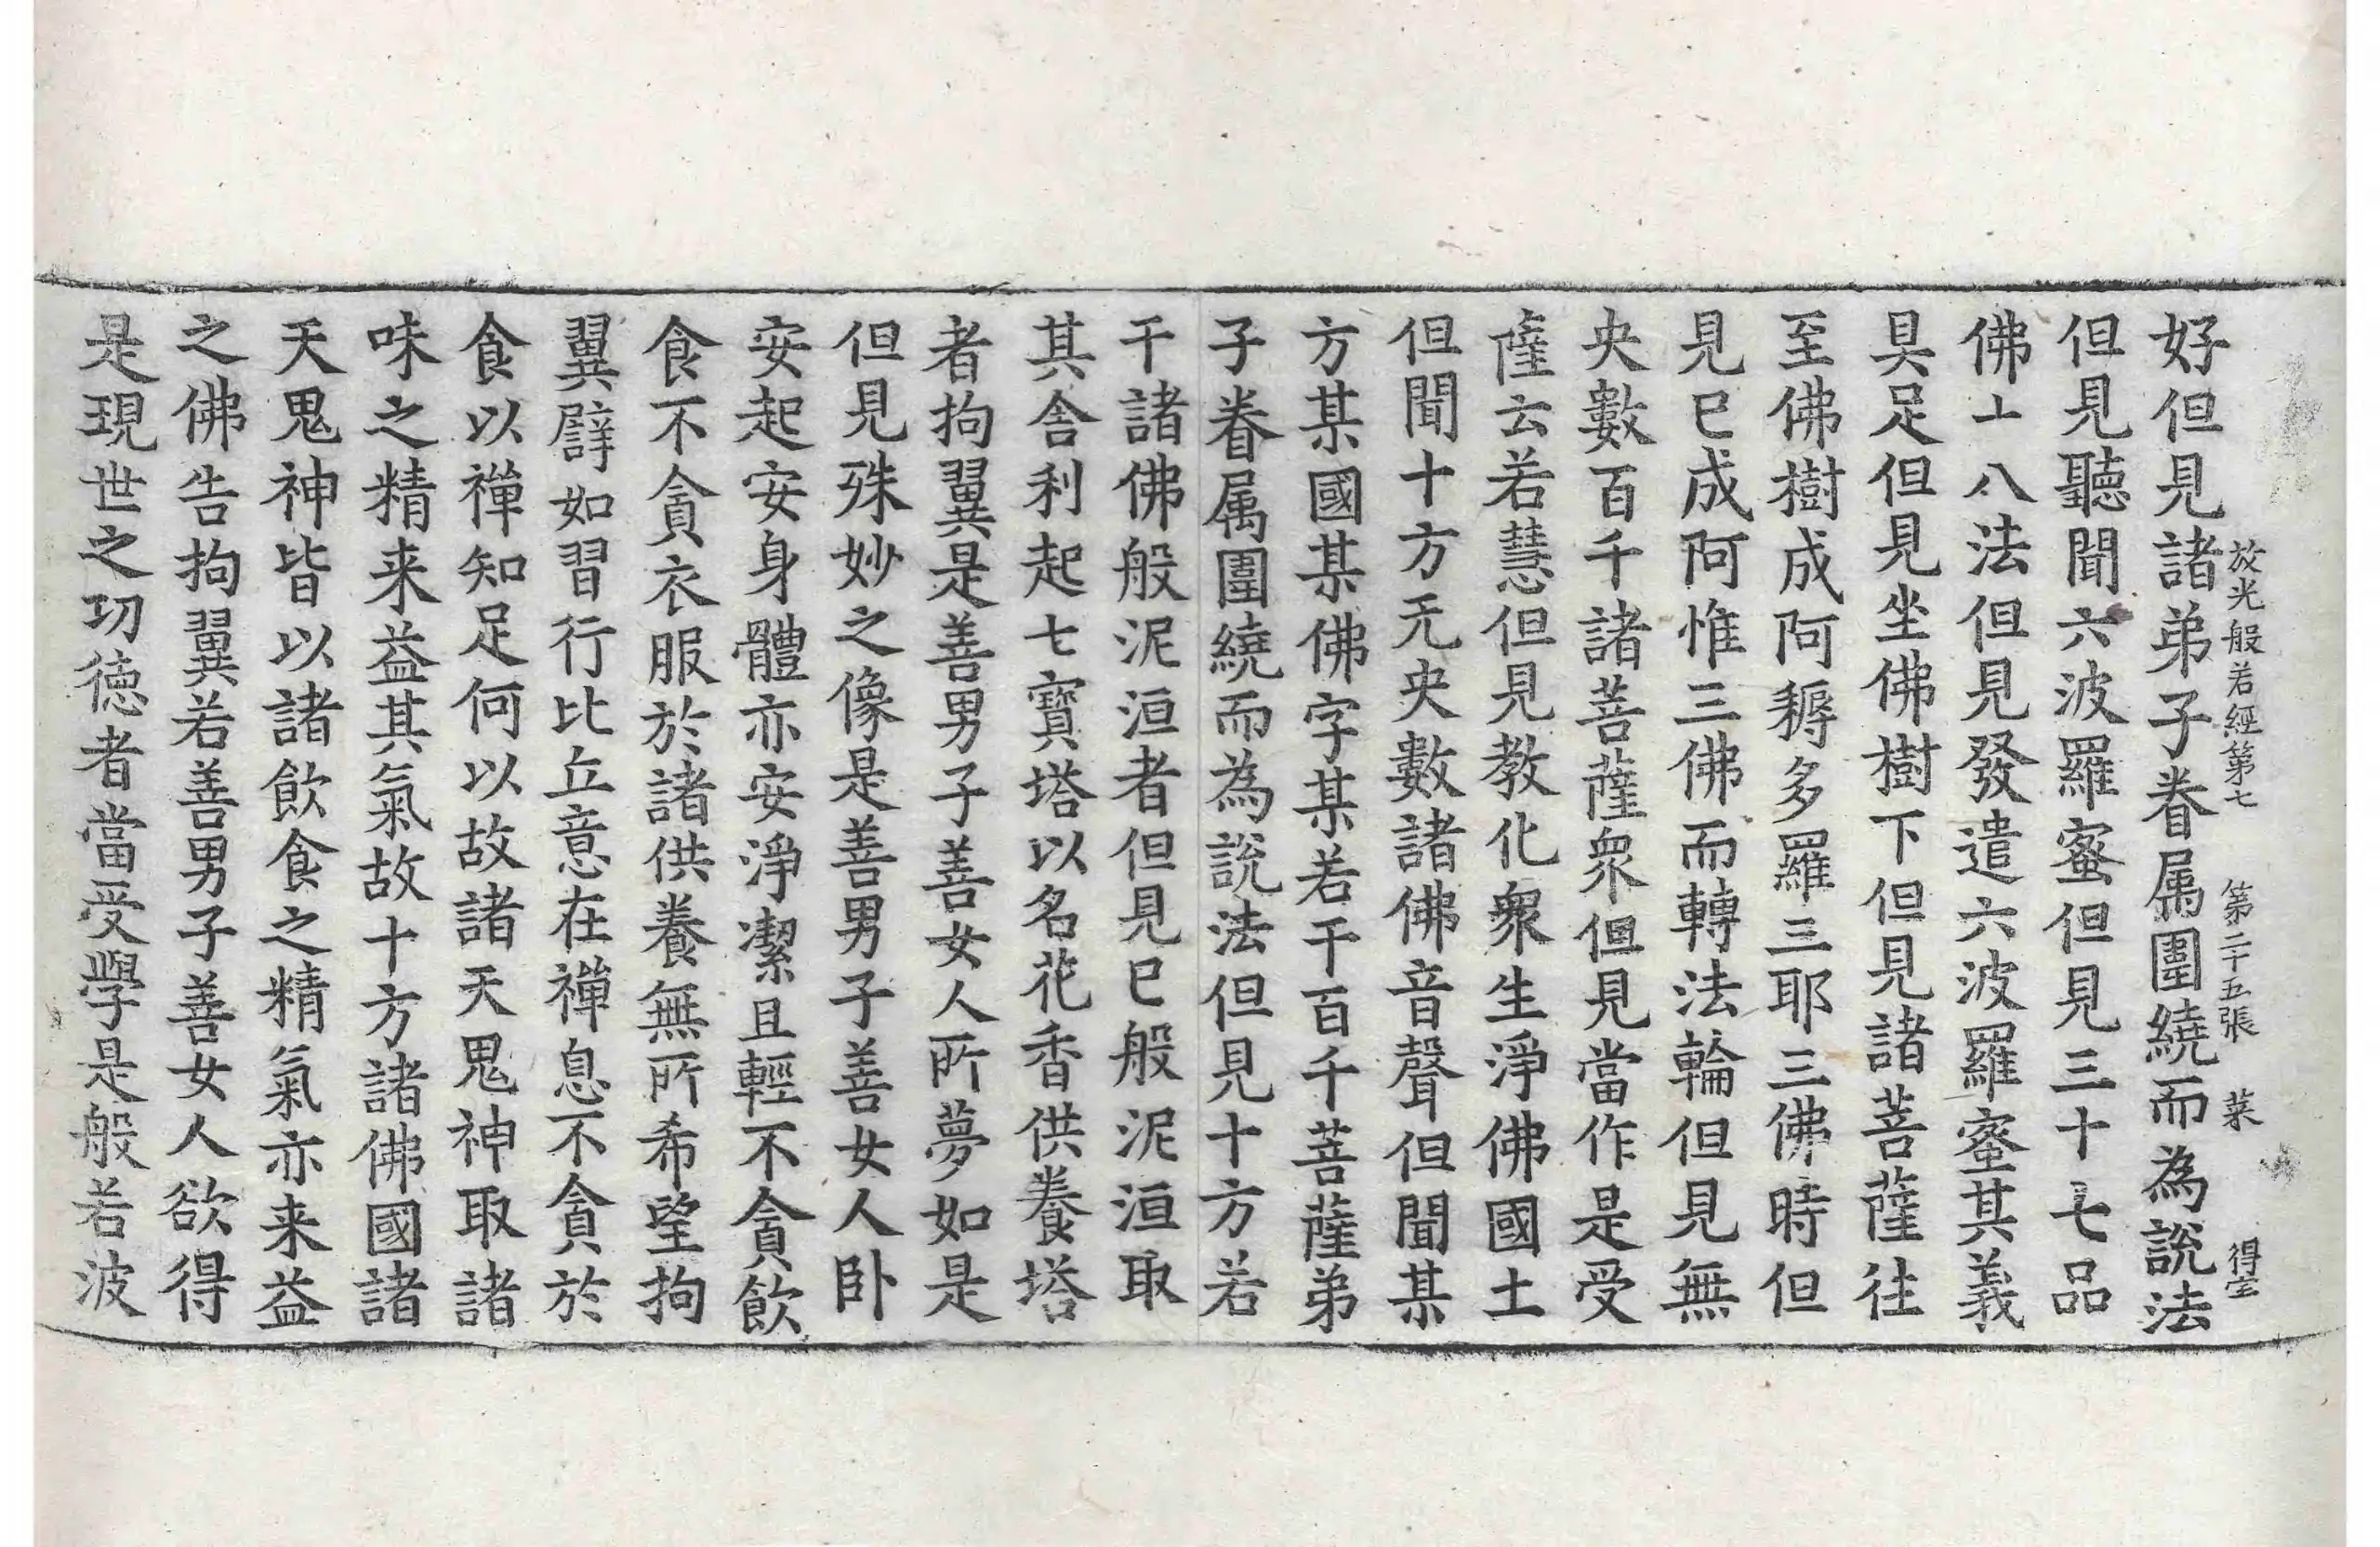 放光般若經第七 第二十五張 菜 得宝
好但見諸弟子眷属圍繞而為說法
但見聽聞六波羅蜜但見三十七品
佛十八法但見發遣六波羅蜜其義
具足但見坐佛樹下但見諸菩薩往
至佛樹成阿耨多羅三耶三佛時但
見已成阿惟三佛而轉法輪但見無
央數百千諸菩薩衆但見當作是受
薩云若慧但見教化衆生淨佛國土
但聞十方无央數諸佛音聲但聞某
方某國某佛字某若干百千菩薩弟
子眷属圍繞而為說法但見十方若
干諸佛般泥洹者但見已般泥洹取
其舎利起七寶塔以名花香供養塔
者拘翼是善男子善女人所夢如是
但見殊妙之像是善男子善女人卧
安起安身體亦安淨潔且輕不貪飲
食不貪衣服於諸供養無所希望拘
翼譬如習行比丘意在禪息不貪於
食以禪知足何以故諸天鬼神取諸
味之精来益其氣故十方諸佛國諸
天鬼神皆以諸飲食之精氣亦来益
之佛告拘翼若善男子善女人欲得
是現世之功徳者當受學是般若波